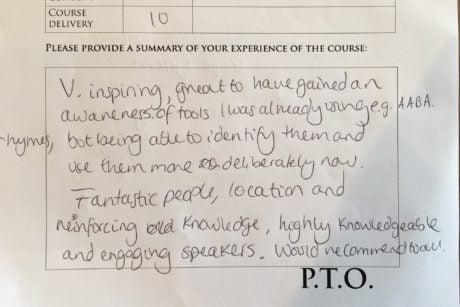 COURSE
DELIVERY 10
PLEASE PROVIDE A SUMMARY OF YOUR EXPERIENCE OF THE COURSE:
V. inspiring, great to have gained an
awareness of tools I was already using e.g. AABA.
rhymes, but being able to identify them and
use them more deliberately now.
Fantastic people, location and
reinforcing old knowledge, highly knowledgeable
and engaging speakers. Would recommend to all.
P.T.O.